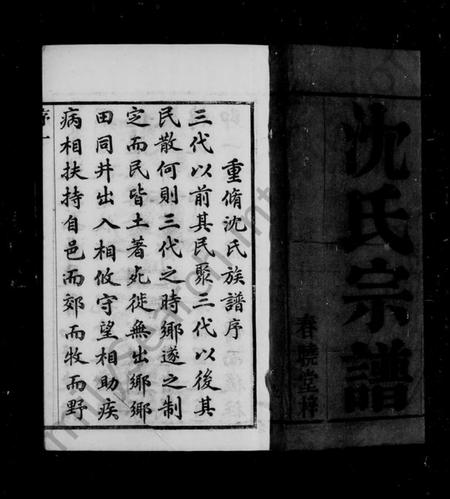 沈氏宗譜
春曉堂梓
重脩沈氏族譜序
三代以前其民聚三代以後其
民散何則三代之時鄉遂之制
定而民皆土著死徙無出鄉鄉
田同井出入相攸守望相助疾
病相扶持自邑而郊而牧而野
序一